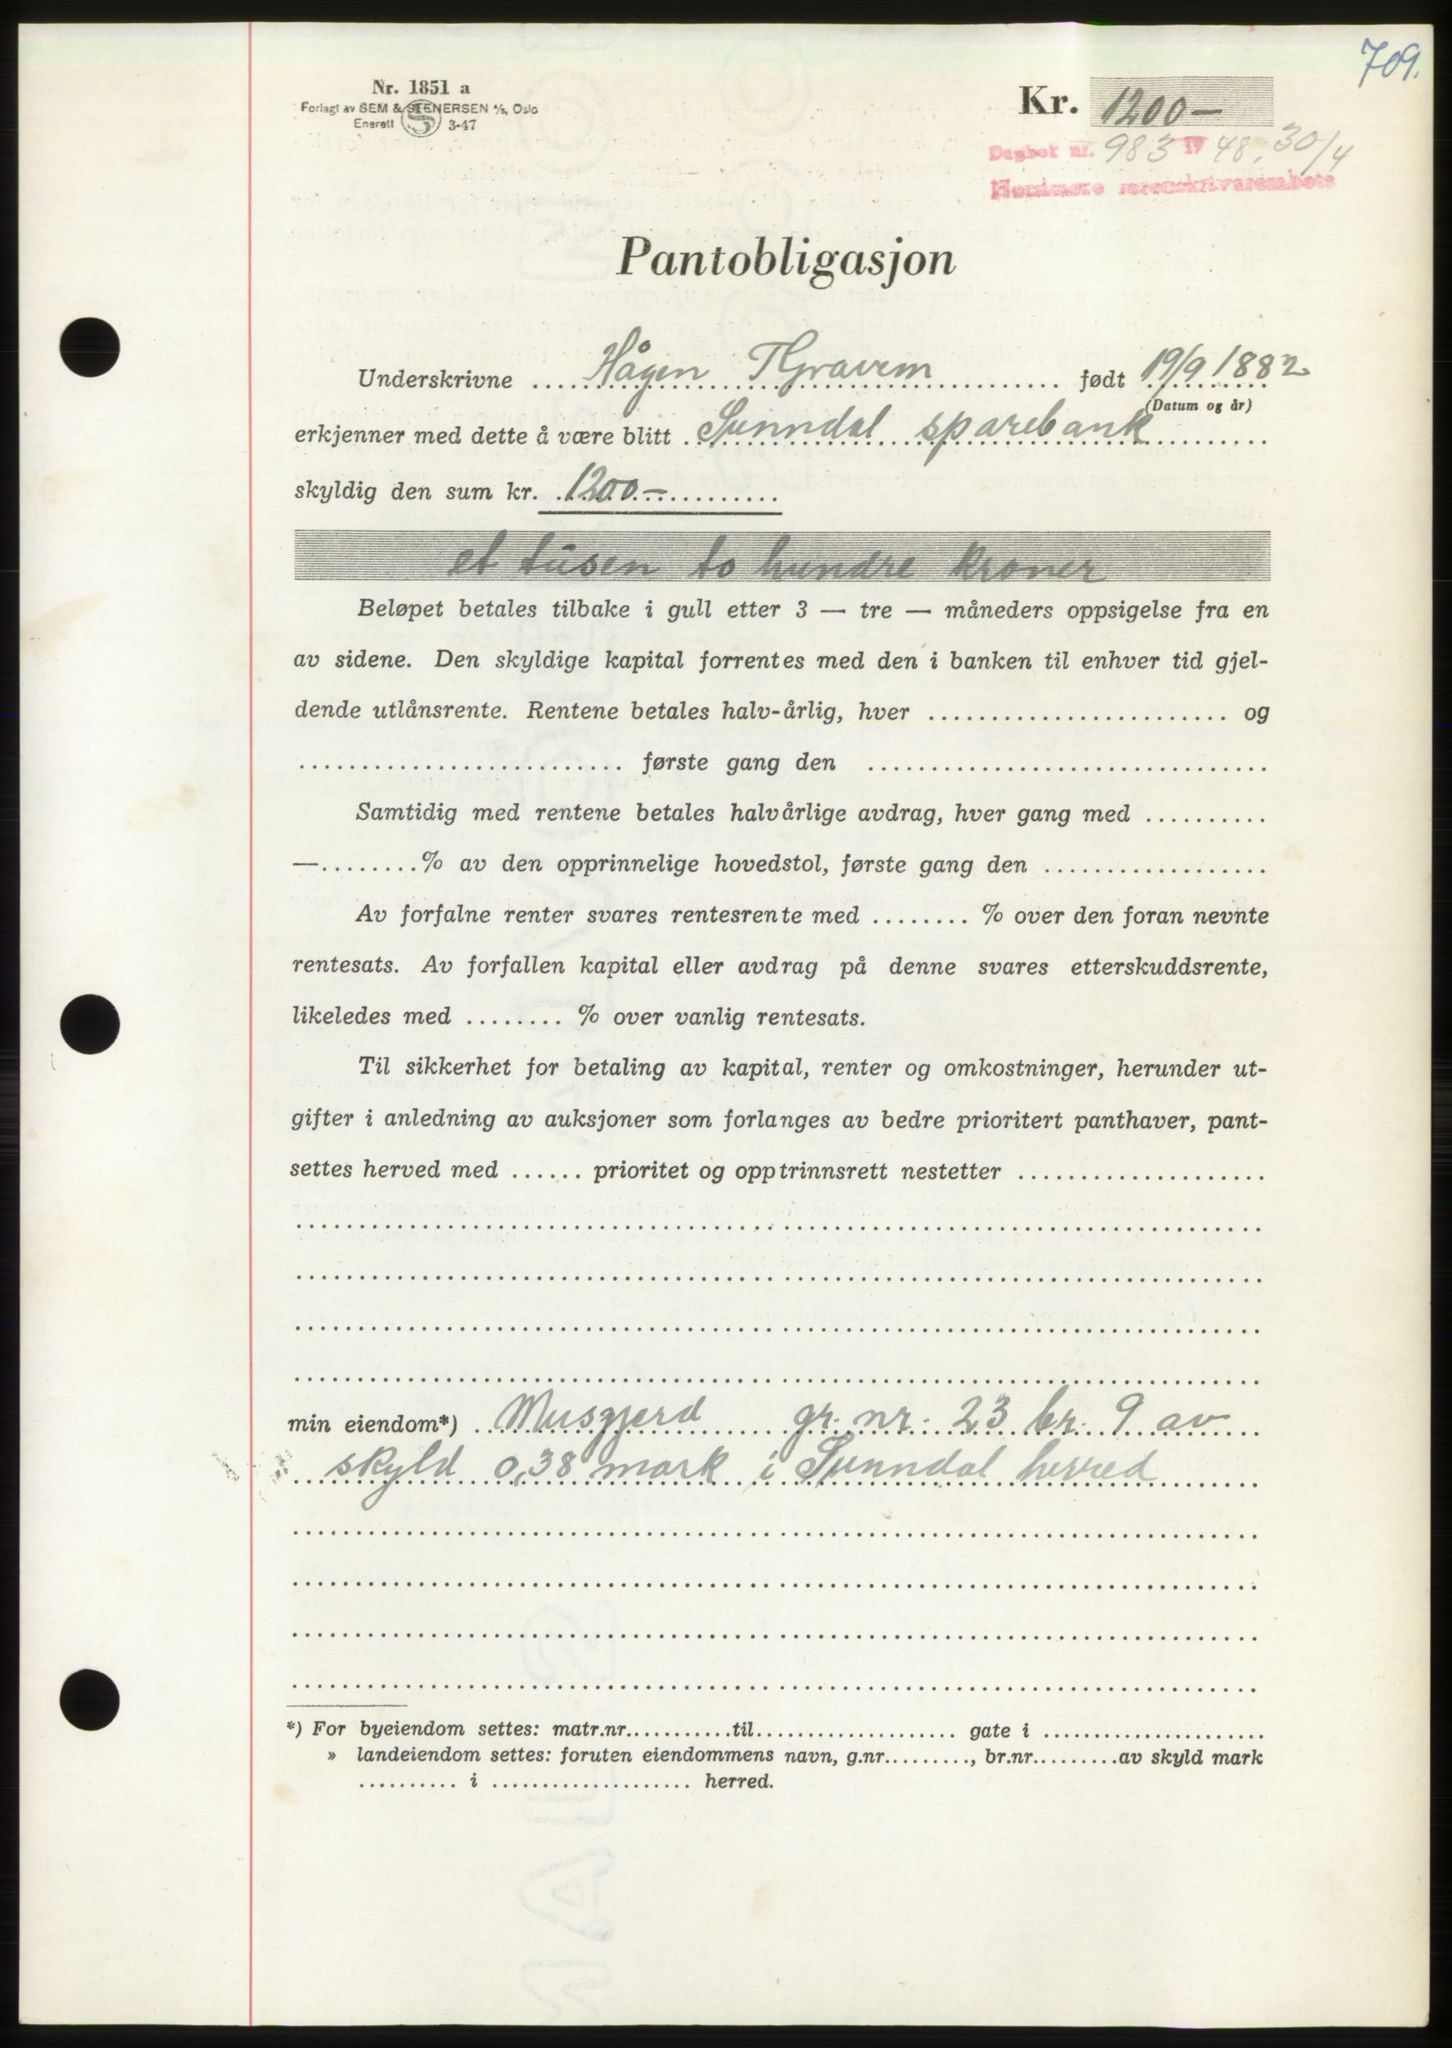 709.
Nr. 1851 a
Forlagt av SEM & STENERSEN A/S, Oslo
Enerett S 3-47
Kr. 1200-
Dagbok nr. 983 19 48, 30/4
Nordmøre sorenskriverembete
Pantobligasjon
Underskrivne Hågen T Gravem født 19/9 1882
(Datum og år)
erkjenner med dette å være blitt Sunndal sparebank
skyldig den sum kr. 1200-
et tusen to hundre kroner
Beløpet betales tilbake i gull etter 3 — tre — måneders oppsigelse fra en
av sidene. Den skyldige kapital forrentes med den i banken til enhver tid gjel-
dende utlånsrente. Rentene betales halv-årlig, hver ........................ og
.......................... første gang den ................................
Samtidig med rentene betales halvårlige avdrag, hver gang med ..........
—........% av den opprinnelige hovedstol, første gang den ..................
Av forfalne renter svares rentesrente med ........ % over den foran nevnte
rentesats. Av forfallen kapital eller avdrag på denne svares etterskuddsrente,
likeledes med ........ % over vanlig rentesats.
Til sikkerhet for betaling av kapital, renter og omkostninger, herunder ut-
gifter i anledning av auksjoner som forlanges av bedre prioritert panthaver, pant-
settes herved med ...... prioritet og opptrinnsrett nestetter ....................
min eiendom*) Musgjerd gr. nr. 23 br. 9 av
skyld 0,38 mark i Sunndal herred
*) For byeiendom settes: matr.nr...........til.................... gate i ......................
» landeiendom settes: foruten eiendommens navn, g.nr........., br.nr.........av skyld mark
.......... i .................... herred.